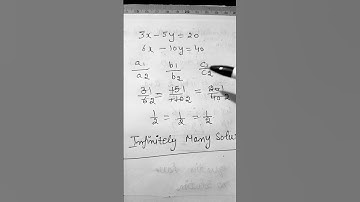 3x - 5y = 20
6x - 10y = 40
a1/a2 b1/b2 c1/c2
31/62 = +51/+102 = 20/40 2
1/2 = 1/2 = 1/2
Infinitely Many Solu